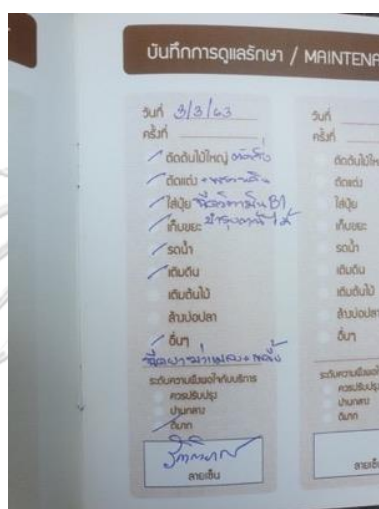 บันทึกการดูแลรักษา / MAINTENA
วันที่ 3/3/63
ครั้งที่
ตัดต้นไม้ใหญ่
ตัดแต่ง
ใส่ปุ๋ย ฉีดวิตามิน B1
เก็บขยะ บำรุง
รดน้ำ
เติมดิน
เติมต้นไม้
ล้างบ่อปลา
อื่นๆ
ฉีดยาฆ่าแมลง + เพลี้ย
ระดับความพึงพอใจกับบริการ
ควรปรับปรุง
ปานกลาง
ดีมาก
ลายเซ็น
วันที่
ครั้งที่
ตัดต้นไม้ให
ตัดแต่ง
ใส่ปุ๋ย
เก็บขยะ
รดน้ำ
เติมดิน
เติมต้นไม้
ล้างบ่อปลา
อื่นๆ
ระดับความพึงพอใ
ควรปรับปรุง
ปานกลาง
ดีมาก
ลายเซ็น